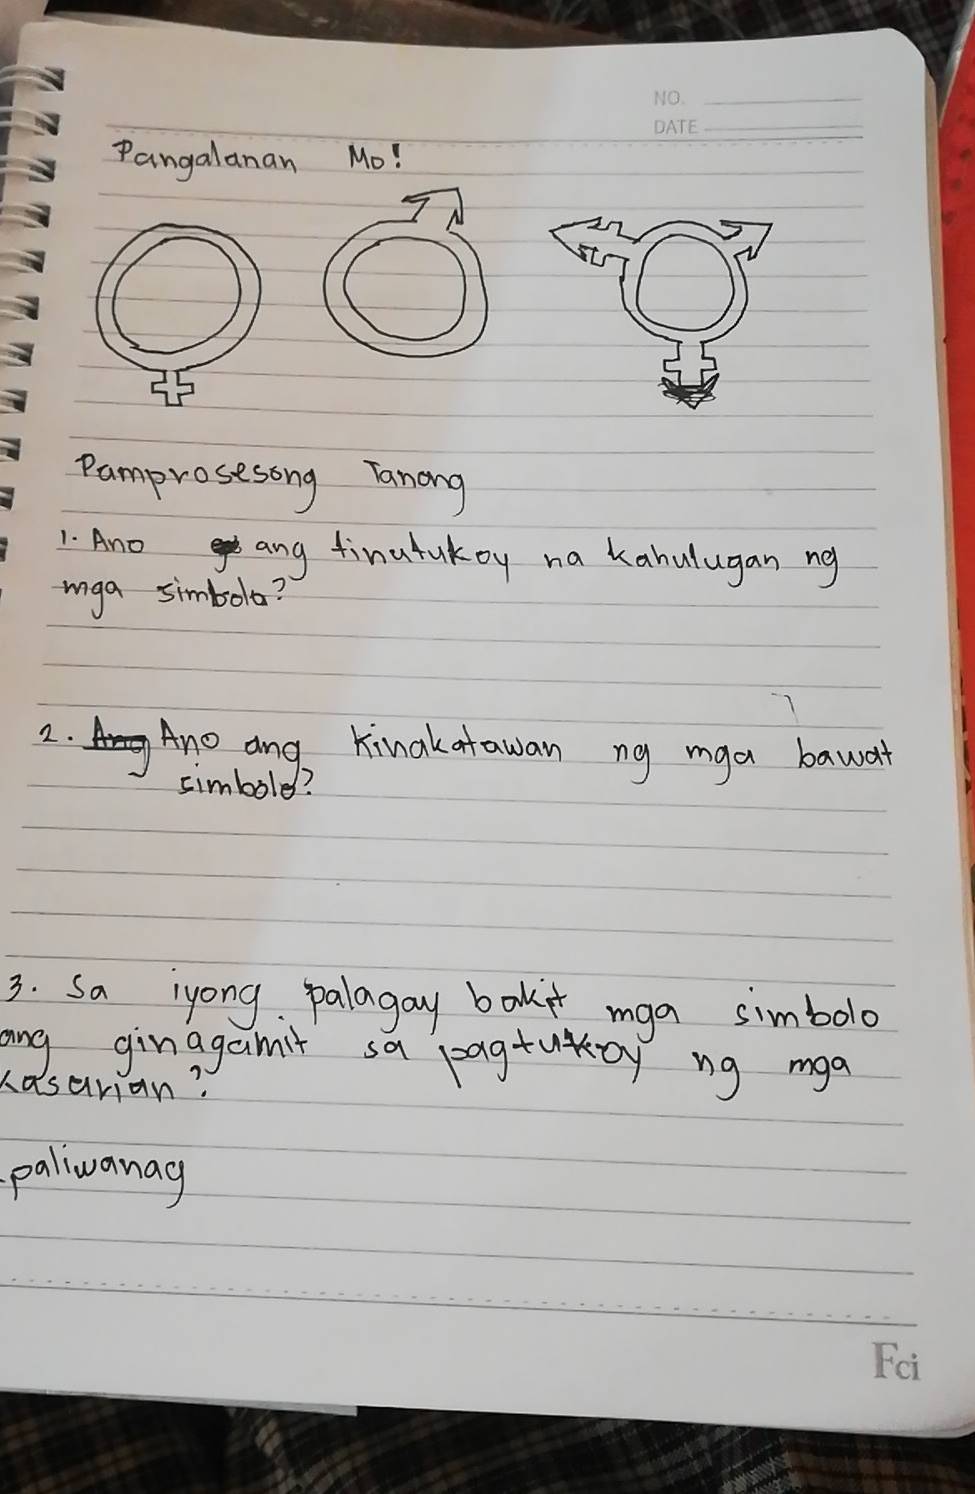 NO.
DATE
Pangalanan Mo!
Pamprosesong Tanong
1. Ano ang tinutukoy na kahulugan ng
mga simbolo?
2. Ang Ano ang kinakatawan ng mga bawat
simbolo?
3. Sa iyong palagay bakit mga simbolo
ang ginagamit sa pagtukoy ng mga
kasarian?
paliwanag
Fci